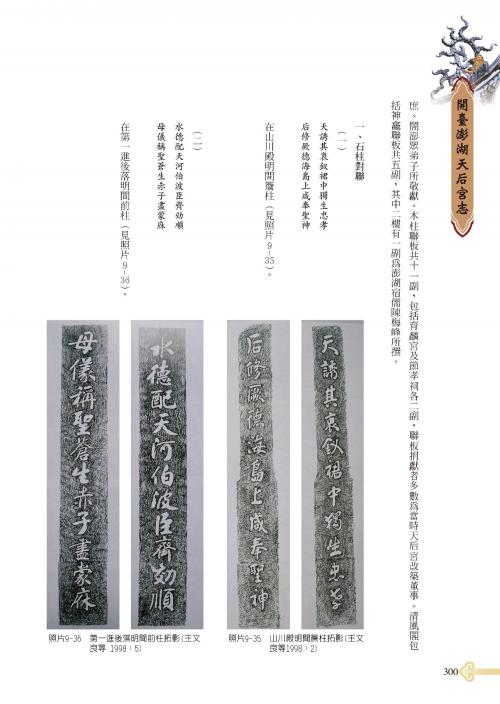 開臺澎湖天后宮志
庶、闔澎眾弟子所敬獻。木柱聯板共十一副，包括育麟宮及節孝祠各二副，聯板捐獻者多數為當時天后宮改築董事。清風閣包
括神龕聯板共五副，其中二樓有一副為澎湖宿儒陳梅峰所撰。
一、石柱對聯
（一）
天誘其衷釵裙中獨生忠孝
后修厥德海島上咸奉聖神
在山川殿明間簷柱（見照片9-35）。
（二）
水德配天河伯波臣齊効順
母儀稱聖蒼生赤子盡蒙庥
在第一進後落明間前柱（見照片9-36）。
天誘其衷釵裙中獨生忠孝
后修厥德海島上咸奉聖神
水德配天河伯波臣齊効順
母儀稱聖蒼生赤子盡蒙庥
照片9-35　山川殿明間簷柱拓影(王文
良等1998：2)
照片9-36　第一進後落明間前柱拓影(王文
良等 1998：5)
300